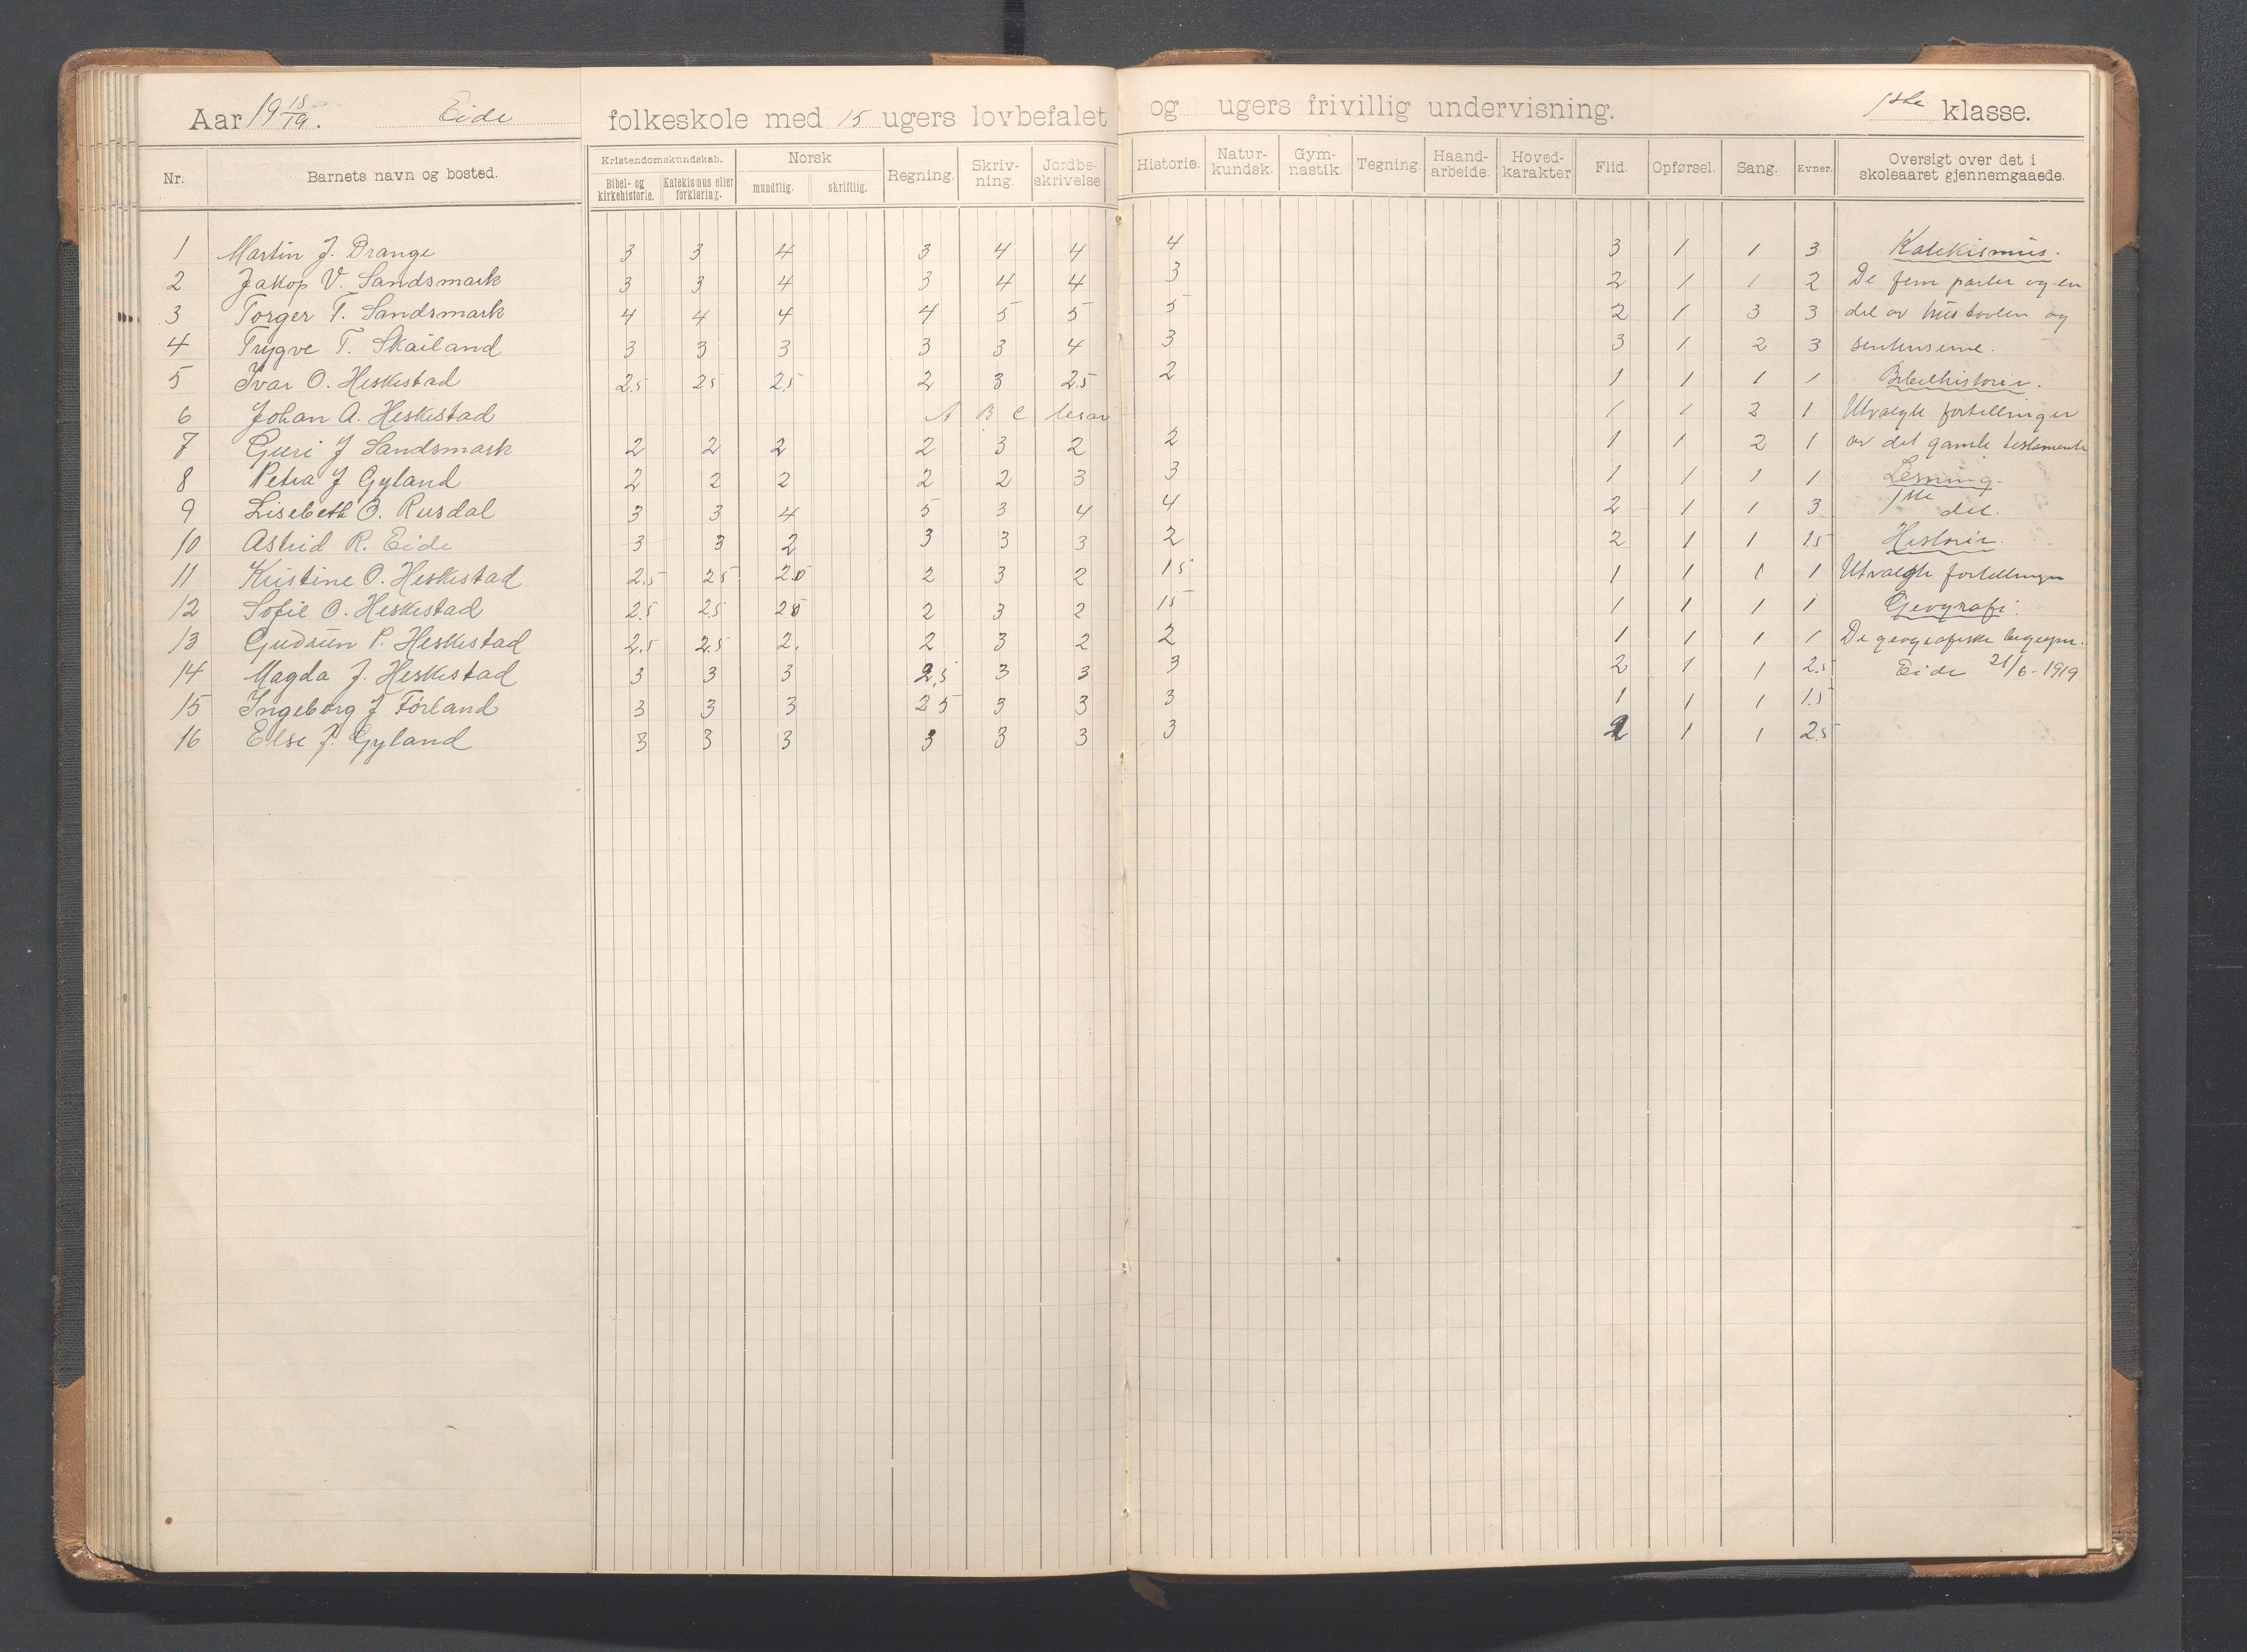 Aar 19 18/19. Eide folkeskole med 15 ugers lovbefalet og ugers frivillig undervisning. 1ste klasse.
Nr. Barnets navn og bosted. Kristendomskundskab. Bibel- og kirkehistorie. Katekismus eller forklaring. Norsk mundtlig. skriftlig. Regning. Skriv-ning. Jordbe-skrivelse. Historie. Natur-kundsk. Gym-nastik. Tegning. Haand-arbeide. Hoved-karakter Flid. Opførsel. Sang. Evner. Oversigt over det i skoleaaret gjennemgaaede.
1 Martin J. Drange 3 3 4 3 4 4 4 3 1 1 3 Katekismus.
2 Jakop V. Sandsmark 3 3 4 3 4 4 3 2 1 1 2 De fem parter og en
3 Torger T. Sandsmark 4 4 4 4 5 5 5 2 1 3 3 del av hustavlen og
4 Trygve T. Skailand 3 3 3 3 3 4 3 3 1 2 3 sentenserne.
5 Ivar O. Heskestad 2.5 25 2.5 2 3 2.5 2 1 1 1 1 Bibelhistorie.
6 Johan A. Heskestad A B C leser 1 1 2 1 Utvalgte fortellinger
7 Guri J Sandsmark 2 2 2 2 3 2 2 1 1 2 1 av det gamle testamente
8 Petra J Gyland 2 2 2 2 2 3 3 1 1 1 1 Lesning.
9 Lisebeth O. Rusdal 3 3 4 5 3 4 4 2 1 1 3 1ste del.
10 Astrid R. Eide 3 3 2 3 3 3 2 2 1 1 15 Historie.
11 Kristine O. Heskestad 2.5 25 2.0 2 3 2 15 1 1 1 1 Utvalgte fortellinger
12 Sofie O. Heskestad 2.5 2.5 2.0 2 3 2 15 1 1 1 1 Geografi.
13 Gudrun P. Heskestad 2.5 2.5 2. 2 3 2 2 1 1 1 1 De geografiske begreper.
14 Magda J. Heskestad 3 3 3 2.5 3 3 3 2 1 1 2.5 Eide 21/6-1919
15 Ingeborg J Førland 3 3 3 25 3 3 3 1 1 1 1.5
16 Else J. Gyland 3 3 3 3 3 3 3 2 1 1 2.5